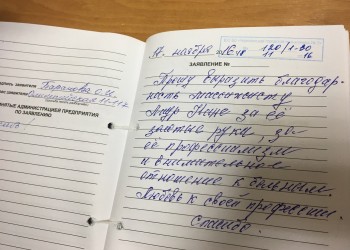 Баранова О.И.
НЯТЫЕ АДМИНИСТРАЦИЕЙ ПРЕДПРИЯТИЯ
ПО ЗАЯВЛЕНИЮ
17 ноября 2016
120/1-30
11 16
ЗАЯВЛЕНИЕ №
Прошу выразить благодар-
ность массажисту
за её
золотые руки, за
её профессионализм
и внимательное
отношение к больным.
Любовь к своей профессии.
Спасибо.